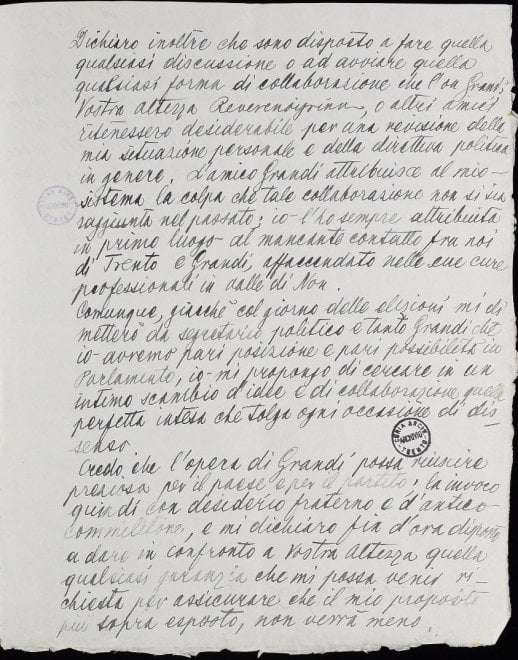 Dichiaro inoltre che sono disposto a fare quella
qualsiasi discussione o ad avviare quella
qualsiasi forma di collaborazione che l'on Grandi,
Vostra altezza Reverendissima, o altri amici
ritenessero desiderabile per una revisione della
mia situazione personale e della direttiva politica
in genere. L'amico Grandi attribuisce al mio
sistema la colpa che tale collaborazione non si sia
raggiunta nel passato; io l'ho sempre attribuita
in primo luogo al mancante contatto fra noi
di Trento e Grandi, affaccendato nelle sue cure
professionali in valle di Non.
Comunque, giacchè col giorno delle elezioni mi di
metterò da segretario politico e tanto Grandi che
io avremo pari posizione e pari possibilità in
Parlamento, io mi propongo di cercare in un
intimo scambio d'idee e di collaborazione quella
perfetta intesa che tolga ogni occasione di dis-
senso.
Credo che l'opera di Grandi possa riuscire
preziosa per il paese e per il partito; la invoco
quindi con desiderio fraterno e d'antico
commilitone, e mi dichiaro fin d'ora disposto
a dare in confronto a Vostra altezza quella
qualsiasi garanzia che mi possa venir ri-
chiesta per assicurare che il mio proposito
più sopra esposto, non verrà meno.
TRENTO